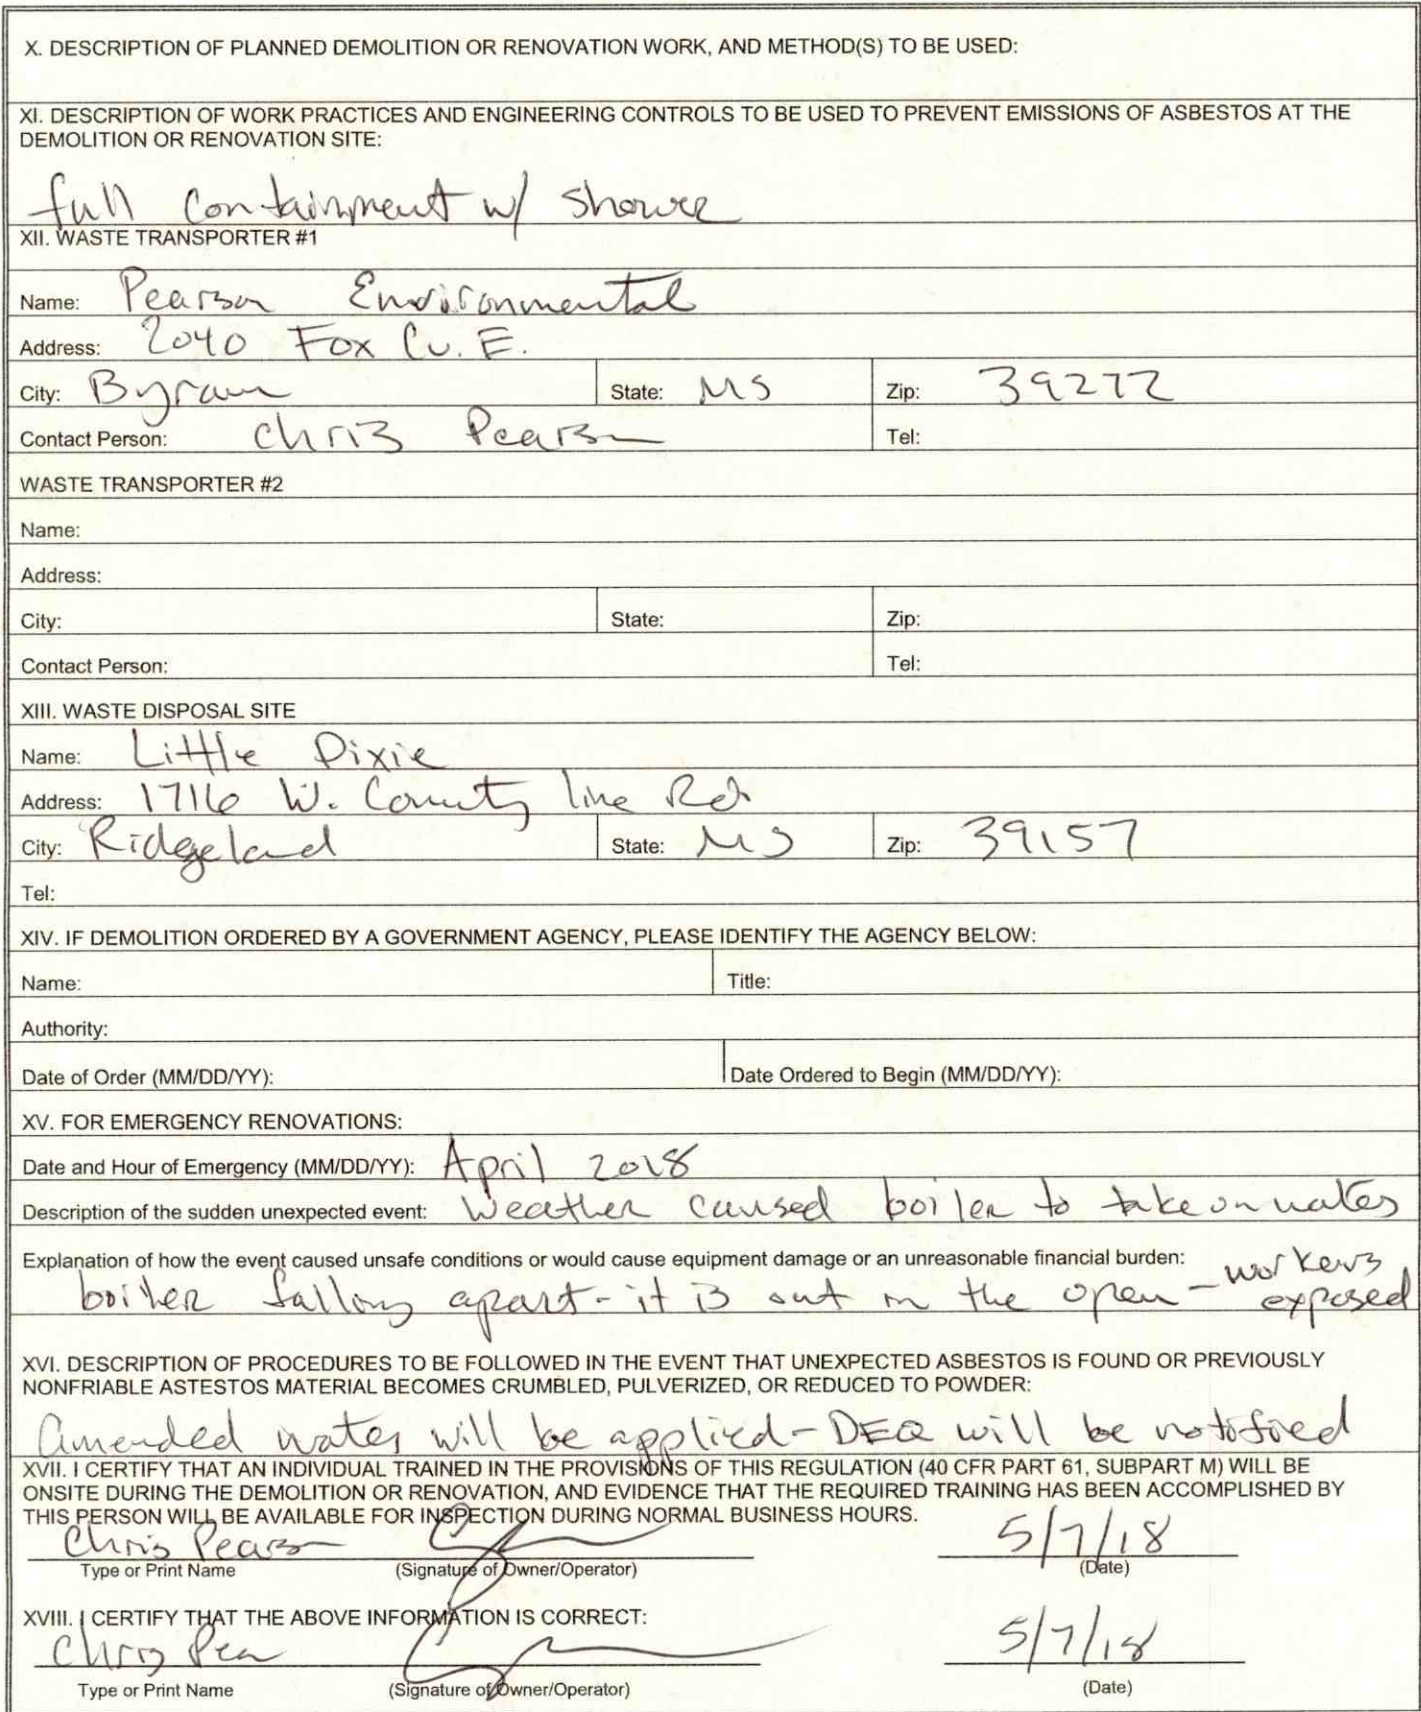 X. DESCRIPTION OF PLANNED DEMOLITION OR RENOVATION WORK, AND METHOD(S) TO BE USED:
XI. DESCRIPTION OF WORK PRACTICES AND ENGINEERING CONTROLS TO BE USED TO PREVENT EMISSIONS OF ASBESTOS AT THE
DEMOLITION OR RENOVATION SITE:
full containment w/ shower
XII. WASTE TRANSPORTER #1
Name: Pearson Environmental
Address: 2040 Fox Cv. E.
City: Byram State: MS Zip: 39272
Contact Person: Chris Pearson Tel:
WASTE TRANSPORTER #2
Name:
Address:
City: State: Zip:
Contact Person: Tel:
XIII. WASTE DISPOSAL SITE
Name: Little Dixie
Address: 1716 W. County line Rd
City: Ridgeland State: MS Zip: 39157
Tel:
XIV. IF DEMOLITION ORDERED BY A GOVERNMENT AGENCY, PLEASE IDENTIFY THE AGENCY BELOW:
Name: Title:
Authority:
Date of Order (MM/DD/YY): Date Ordered to Begin (MM/DD/YY):
XV. FOR EMERGENCY RENOVATIONS:
Date and Hour of Emergency (MM/DD/YY): April 2018
Description of the sudden unexpected event: Weather caused boiler to take on water
Explanation of how the event caused unsafe conditions or would cause equipment damage or an unreasonable financial burden:
boiler falling apart - it is out in the open - workers exposed
XVI. DESCRIPTION OF PROCEDURES TO BE FOLLOWED IN THE EVENT THAT UNEXPECTED ASBESTOS IS FOUND OR PREVIOUSLY
NONFRIABLE ASTESTOS MATERIAL BECOMES CRUMBLED, PULVERIZED, OR REDUCED TO POWDER:
Amended water will be applied - DEQ will be notified
XVII. I CERTIFY THAT AN INDIVIDUAL TRAINED IN THE PROVISIONS OF THIS REGULATION (40 CFR PART 61, SUBPART M) WILL BE
ONSITE DURING THE DEMOLITION OR RENOVATION, AND EVIDENCE THAT THE REQUIRED TRAINING HAS BEEN ACCOMPLISHED BY
THIS PERSON WILL BE AVAILABLE FOR INSPECTION DURING NORMAL BUSINESS HOURS.
Chris Pearson 5/7/18
Type or Print Name (Signature of Owner/Operator) (Date)
XVIII. I CERTIFY THAT THE ABOVE INFORMATION IS CORRECT:
Chris Pea 5/7/18
Type or Print Name (Signature of Owner/Operator) (Date)